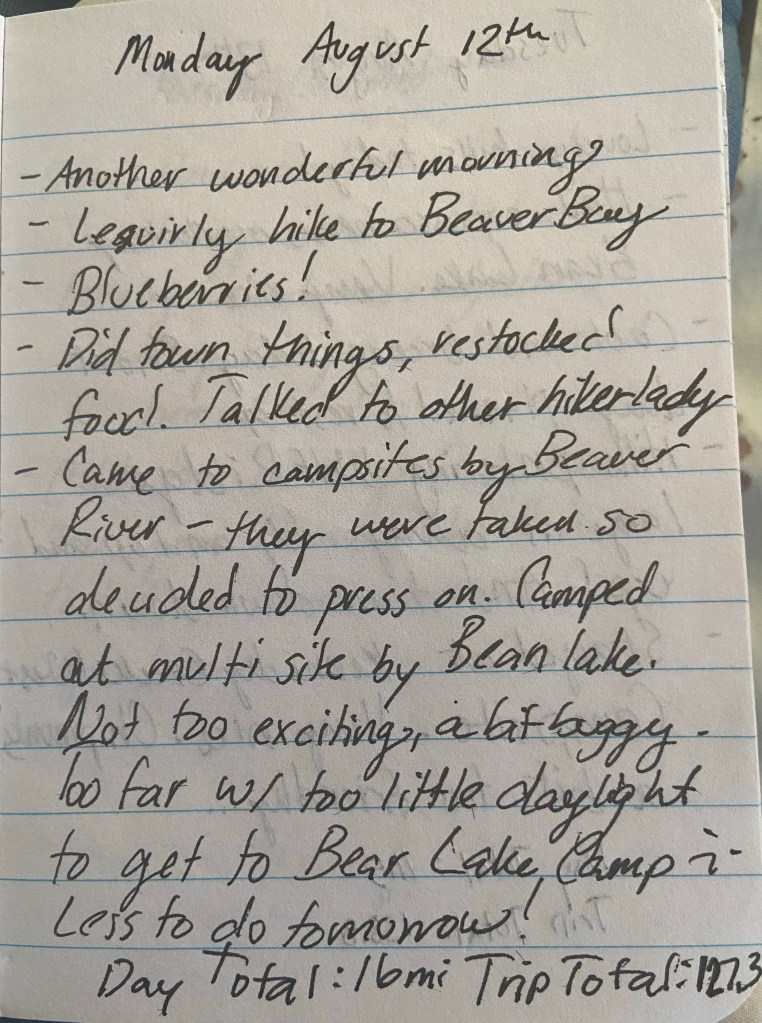 Monday August 12th
- Another wonderful morning
- Lesuirly hike to Beaver Bay
- Blueberries!
- Did town things, restocked
food. Talked to other hiker lady
- Came to campsites by Beaver
River - they were taken so
decided to press on. Camped
at multi site by Bean lake.
Not too exciting, a bit buggy -
too far w/ too little daylight
to get to Bear Lake Camp :-
Less to do tomorrow!
Day Total: 16mi Trip Total: 127.3